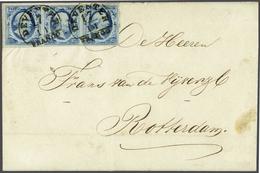 DEVENTER
FRANCO
DEVENTER
FRANCO
De Heeren
Frans van de
Rotterdam.